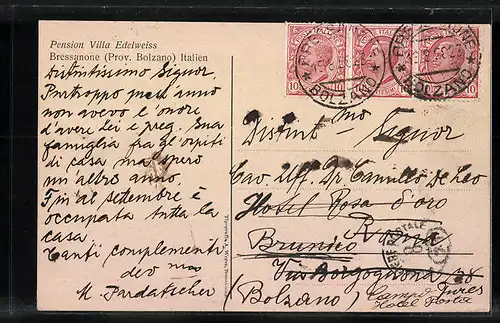 Pension Villa Edelweiss
Bressanone (Prov. Bolzano) Italien
Distintissimo Signor,
Purtroppo quest' anno
non avevo l'onore
d'avere Lei e preg. Sua
famiglia fra gli ospiti
di casa ma spero
un'altro anno.
Fin al settembre è
occupata tutta la
casa
Tanti complimenti
dev mo
M. Pardatscher
BRESSANONE
BOLZANO
BRESSANONE
BOLZANO
10
10
10
Distint mo Signor
Cav. Uff. Dr Camillo De Leo
Hotel Rosa d'oro
Roma
Brunico
Via Borgognona 38
(Bolzano)
Campo Tures
Hotel Posta